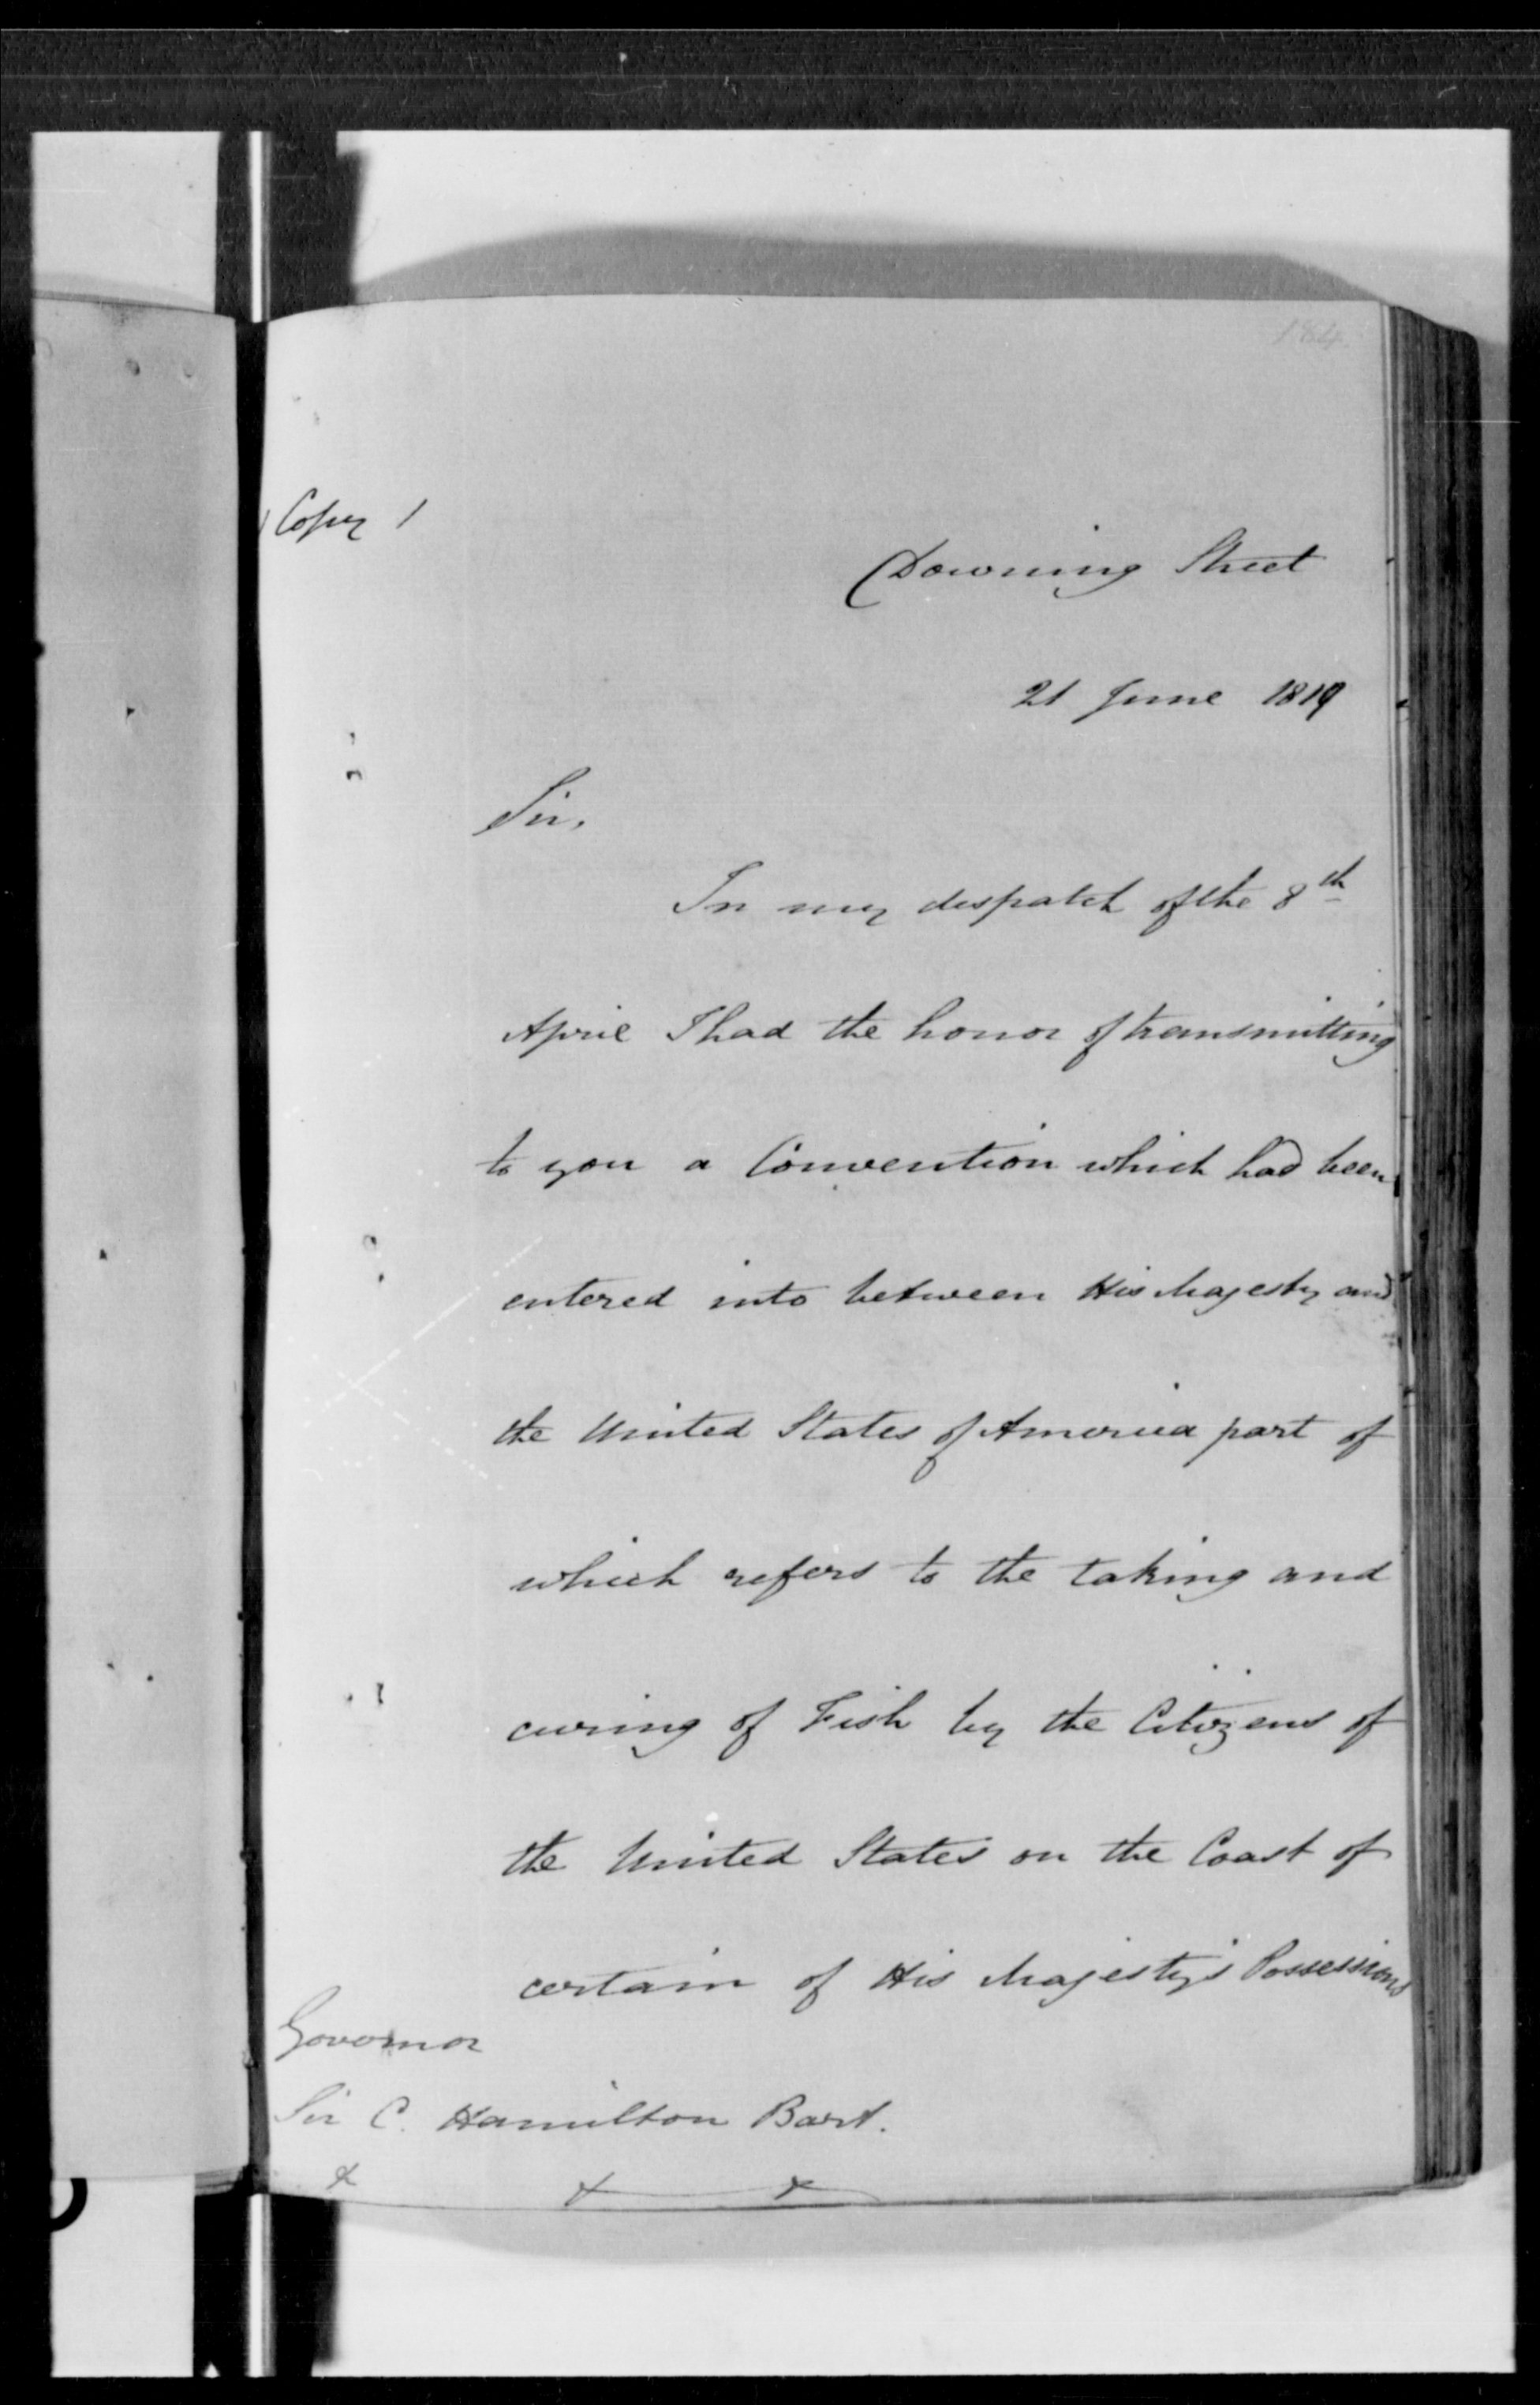 184
Copy /
Downing Street
21 June 1819
Sir,
In my dispatch of the 8th
April I had the honor of transmitting
to you a Convention which had been
entered into between His Majesty and
the United States of America part of
which refers to the taking and
curing of Fish by the Citizens of
the United States on the Coast of
certain of His Majesty's Possessions
Governor
Sir C. Hamilton Bart.